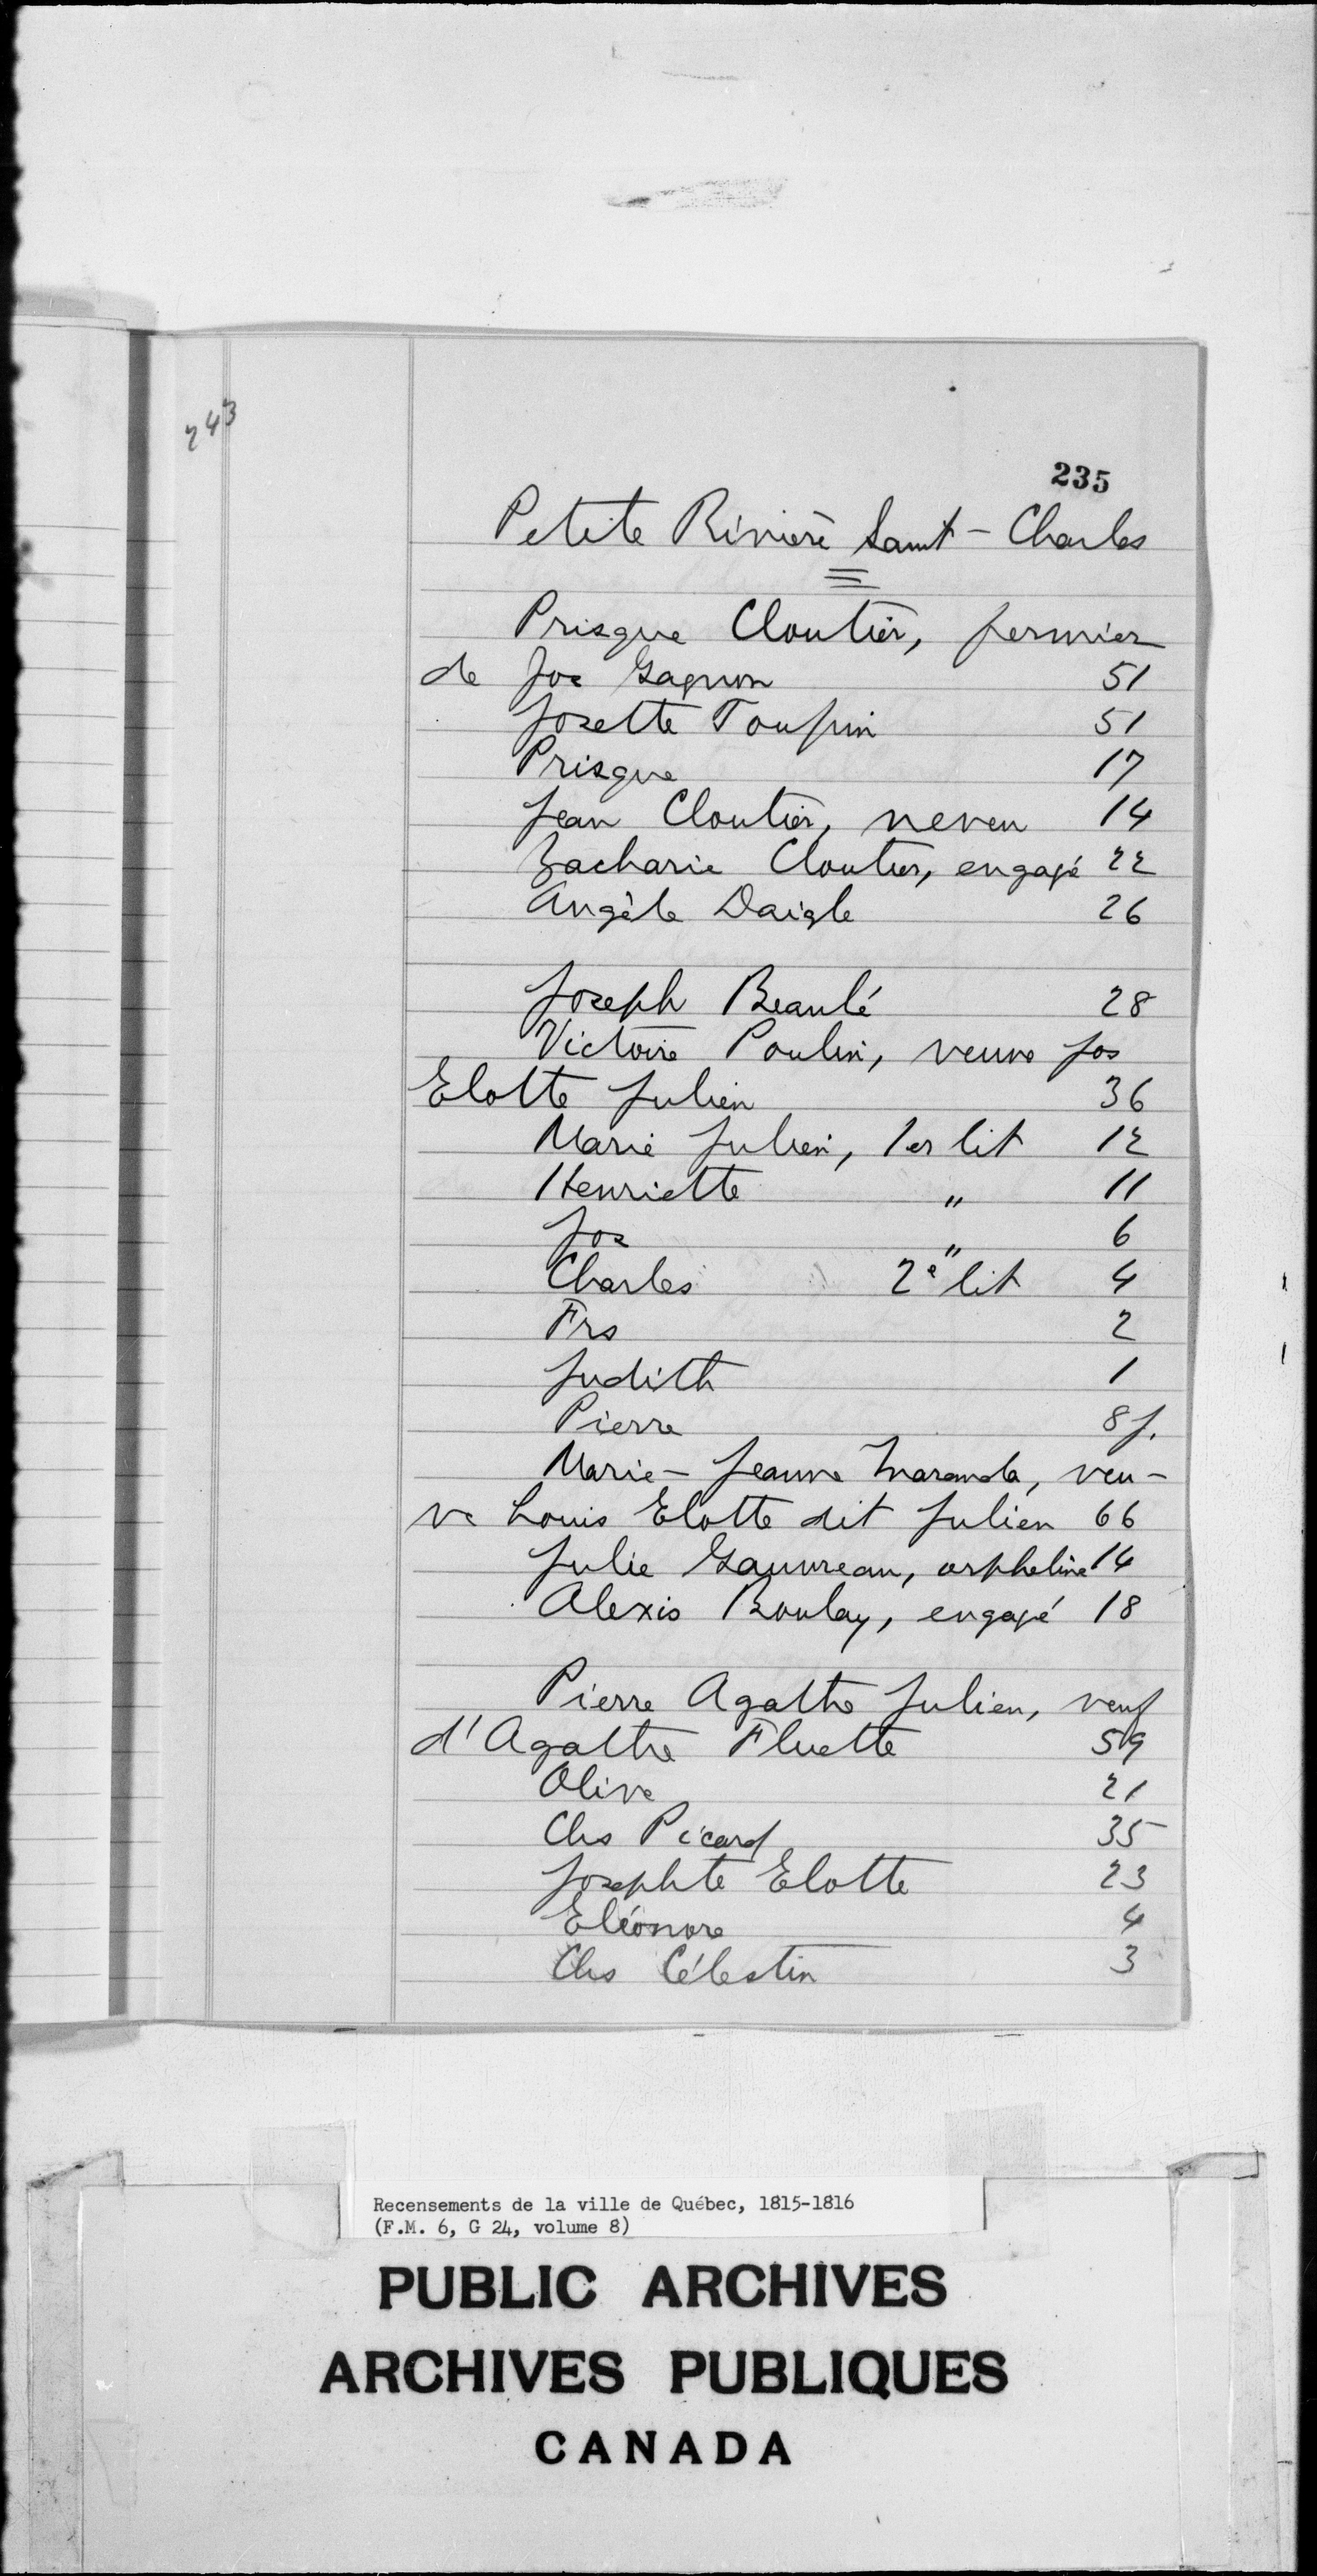 243
235
Petite Rivière Saint-Charles
Prisque Cloutier, fermier
de Jos Gagnon 51
Josette Toupin 51
Prisque 17
Jean Cloutier, neveu 14
Zacharie Cloutier, engagé 22
Angèle Daigle 26
Joseph Beaulé 28
Victoire Poulin, veuve Jos
Elotte Julien 36
Marie Julien, 1er lit 12
Henriette " 11
Jos " 6
Charles 2e lit 4
Frs 2
Judith 1
Pierre 8 j.
Marie-Jeanne Maranda, veu-
ve Louis Elotte dit Julien 66
Julie Gauvreau, orpheline 14
Alexis Boulay, engagé 18
Pierre Agathe Julien, veuf
d'Agathe Fluette 59
Olive 21
Chs Picard 35
Josephte Elotte 23
Eléonore 4
Chs Célestin 3
Recensements de la ville de Québec, 1815-1816
(F.M. 6, G 24, volume 8)
PUBLIC ARCHIVES
ARCHIVES PUBLIQUES
CANADA